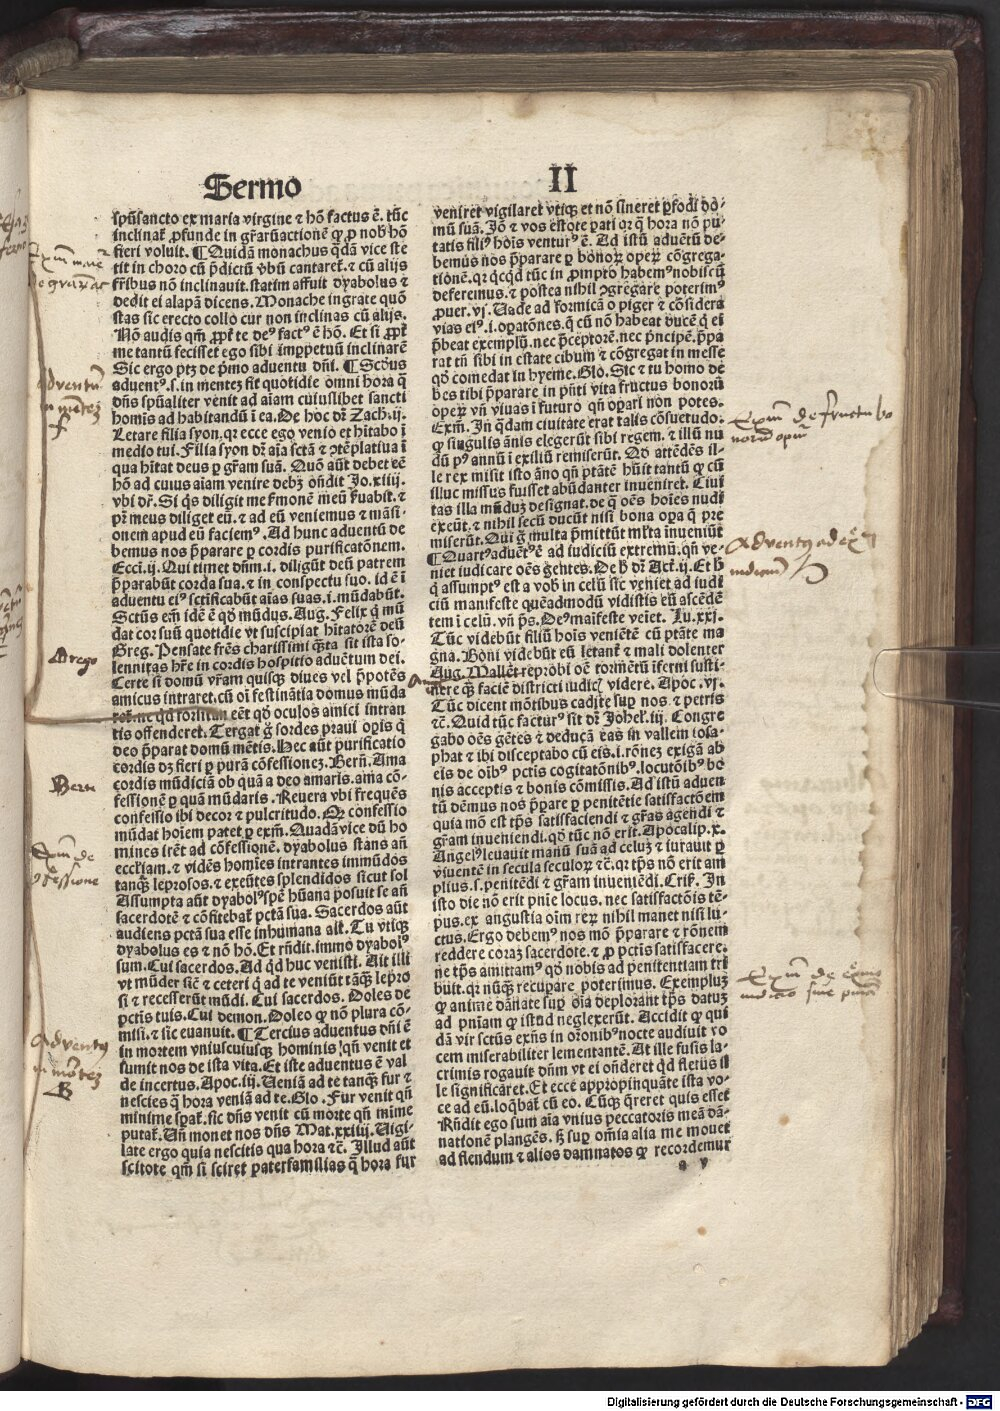 Sermo
II
spūsancto ex maria virgine ⁊ hō factus ē. tūc
inclinat ꝓfunde in gr̄arūactionē ꝙ ꝓ nob̄ hō
fieri voluit. ¶ Quidā monachus qdā vice ste
tit in choro cū p̄dictū v̄bū cantaret. ⁊ cū alijs
fr̄ibus nō inclinauit. statim affuit dyabolus ⁊
dedit ei alapā dicens. Monache ingrate quō
stas sic erecto collo cur non inclinas cū alijs.
Nō audis qm̄ ꝓpt̄ te deꝰ factꝰ ē hō. Et si ꝓpt̄
me tantū fecisset ego sibi imꝑpetuū inclinarē
Sic ergo ptꝫ de p̄mo aduentu dn̄i. ¶ Scōus
aduentꝰ.s.in mentez fit quotidie omni hora q̄
dn̄s spūaliter venit ad aīam cuiuslibet sancti
homīs ad habitandū ī ea. De hoc dr̄ Zach.ij.
Letare filia syon. qr ecce ego venio et hītabo ī
medio tui. Filia syon dr̄ aīa sctā ⁊ ꝯtēplatiua ī
qua hītat deus ꝑ gr̄am suā. Quō aūt debet eē
hō ad cuius aīam venire debꝫ oñdit Jo.xiiij.
vbi dr̄. Si qs diligit me ẜmonē meū ẜuabit. ⁊
pr̄ meus diliget eū. ⁊ ad eū veniemus ⁊ māsi-
onem apud eū faciemꝰ. Ad hunc aduentū de
bemus nos p̄parare ꝑ cordis purificatōnem.
Eccī.ij. Qui timet dn̄m.i. diligūt deū patrem
p̄parabūt corda sua. ⁊ in conspectu suo. id ē ī
aduentu eiꝰ sctificabūt aīas suas.i.mūdabūt.
Sctūs em̄ idē ē qd̄ mūdus. Aug. Felix q̄ mū
dat cor suū quotidie vt suscipiat hītatorē deū
Greg. Pensate fr̄es charissimi q̄ta sit ista so-
lennitas hr̄e in cordis hospitio aduētum dei.
Certe si domū vr̄am quisq̄ diues vel p̄potēs
amicus intraret. cū oī festinātia domus mūda
offenderet. Tergat g̊ sordes praui oꝑis q̄
deo p̄parat domū mētis. Hec aūt purificatio
cordis dꝫ fieri ꝑ purā cōfessionez. Bern̄. Ama
cordis mūdiciā ob quā a deo amaris. ama cō-
fessionē ꝑ quā mūdaris. Reuera vbi frequēs
confessio ibi decor ⁊ pulcritudo. Qꝫ confessio
mūdat hoīem patet ꝑ exm̄. Quadā vice dū ho
mines irēt ad cōfessionē. dyabolus stans añ
ecclīam. ⁊ vidēs homīes intrantes immūdos
tanq̄ leprosos. ⁊ exeūtes splendidos sicut sol
Assumpta aūt dyabolꝰ spē hūana posuit se añ
sacerdotē ⁊ cōfitebat̄ pctā sua. Sacerdos aūt
audiens pctā sua esse inhumana ait. Tu vtiq̄
dyabolus es ⁊ nō hō. Et rn̄dit. immo dyabolꝰ
sum. Cui sacerdos. Ad qd huc venisti. Ait illi
vt mūder sic̄ ⁊ ceteri q̄ ad te veniūt tāq̄ lepro
si ⁊ recesserūt mūdi. Cui sacerdos. Doles de
pctīs tuis. Cui demon. Doleo ꝙ nō plura cō-
misi. ⁊ sic euanuit. ¶ Tercius aduentus dn̄i ē
in mortem vniuscuiusq̄ hominis. qn̄ venit et
sumit nos de ista vita. Et iste aduentus ē val
de incertus. Apoc.iij. Veniā ad te tanq̄ fur ⁊
nescies q̄ hora veniā ad te. Glo. Fur venit qn̄
minime sꝑat. sic dn̄s venit cū morte qn̄ mīme
putat̄. Vn̄ monet nos dn̄s Mat.xxiiij. Vigi-
late ergo quia nescitis qua hora ⁊c̄. Illud aūt
scitote qm̄ si sciret paterfamilias q̄ hora fur
veniret vigilaret vtiq̄ et nō sineret ꝑfodi do-
mū suā. Jō ⁊ vos estote pati qr q̄ hora nō pu-
tatis filiꝰ hoīs venturꝰ ē. Ad istū aduētū de-
bemus nos p̄parare ꝑ bonoꝝ opeꝝ cōgrega-
tionē. qr qcqd tūc in ꝓmpto habemꝰ nobiscū
deferemus. ⁊ postea nihil ꝯgregare poterimꝰ
ꝓuer.vj. Vade ad formicā o piger ⁊ cōsidera
vias eiꝰ.i.oꝑatōnes. q̄ cū nō habeat ducē q̄ ei
p̄beat exemplū. nec p̄ceptorē. nec p̄ncipē. p̄pa
rat tn̄ sibi in estate cibum ⁊ cōgregat in messe
qd̄ comedat in hyeme. Glo. Sic ⁊ tu homo de
bes tibi p̄parare in pn̄ti vita fructus bonorū
opeꝝ vn̄ viuas ī futuro qn̄ oꝑari non potes.
Exm̄. In q̄dam ciuitate erat talis cōsuetudo.
ꝙ singulis ānis elegerūt sibi regem. ⁊ illū nu
dū pꝰ annū ī exiliū remiserūt. Qd̄ attēdēs il-
le rex misit isto āno qn̄ ptātē hūit tantū ꝙ cū
illuc missus fuisset abūdanter inueniret. Ciui
tas illa mūduꝫ designat. de q̄ oēs hoīes nudi
exeūt. ⁊ nihil secū ducūt nisi bona oꝑa q̄ pre
miserūt. Qui g̊ multa p̄mittūt ml̄ta īnueniūt
¶ Quartꝰ aduētꝰ ē ad iudiciū extremū. qn̄ ve-
niet iudicare oēs gentes. De h̄ dr̄ Act.ij. Et h̄
q̄ assumptꝰ est a vob̄ in celū sic veniet ad iudi
ciū manifeste quēadmodū vidistis eū ascēdē
tem ī celū. vn̄ p̄s. Deꝰ maīfeste veiet. Lu.xxj.
Tūc videbūt filiū hoīs veniētē cū ptāte ma
gna. Boni videbūt eū letant̄ ⁊ mali dolenter
Aug. Mallēt reprobi oē tormētū īferni susti-
nere q̄ faciē districti iudicꝭ videre. Apoc.vj.
Tūc dicent mōtibus cadite suꝑ nos ⁊ petris
⁊c̄. Quid tūc facturꝰ sit dr̄ Johel.iij. Congre
gabo oēs gētes ⁊ deducā eas in vallem iosa-
phat ⁊ ibi disceptabo cū eis.i.rōnez exigā ab
eis de oībꝰ pctīs cogitatōnibꝰ. locutōibꝰ bo
nis acceptis ⁊ bonis cōmissis. Ad istū aduen
tū dēmus nos p̄pare ꝑ penitētie satisfactōem
quia mō est tp̄s satisfaciendi ⁊ gr̄as agendi ⁊
gr̄am inueniendi. qd̄ tūc nō erit. Apocalip.x.
Angelꝰ leuauit manū suā ad celuꝫ ⁊ iurauit ꝑ
viuentē in secula seculoꝝ ⁊c̄. qr tp̄s nō erit am
plius.s.penitēdi ⁊ gr̄am inueniēdi. Crisͭ. In
isto die nō erit pn̄ie locus. nec satisfactōis tē-
pus. ex angustia oīm reꝝ nihil manet nisi lu-
ctus. Ergo debemꝰ nos mō p̄parare ⁊ rōnem
reddere coraꝫ sacerdote. ⁊ ꝓ pctīs satisfacere.
ne tp̄s amittamꝰ qd̄ nobis ad penitentiam tri
buit. qr nūq̄ recuperare poterimus. Exempluꝫ
ꝙ anime dānate suꝑ oīa deplorant tp̄s datuꝫ
ad pn̄iam ꝙ istud neglexerūt. Accidit ꝙ qui
dā vir sctūs exn̄s in or̄onibꝰ nocte audiuit vo
cem miserabiliter lementantē. At ille fusis la-
crimis rogauit dn̄m vt ei oñderet qd fletus il
le significaret. Et ecce appropinquāte ista vo-
ce ad eū. loqbat̄ cū eo. Cūq̄ q̄reret quis esset
Rn̄dit ego sum aīa vnius peccatoris meā dā-
nationē plangēs. sꝫ suꝑ om̄ia alia me mouet
ad flendum ⁊ alios damnatos ꝙ recordemur
a v
Adventꝰ
in mētez
Grego
Bern
Exm̄ de
ꝯfessione
Adventꝰ
in mōtez
Aug
Exm̄ de fructu bo
norū opm̄
Adventꝰ ad ex
iudiciū
Digitalisierung gefördert durch die Deutsche Forschungsgemeinschaft - DFG